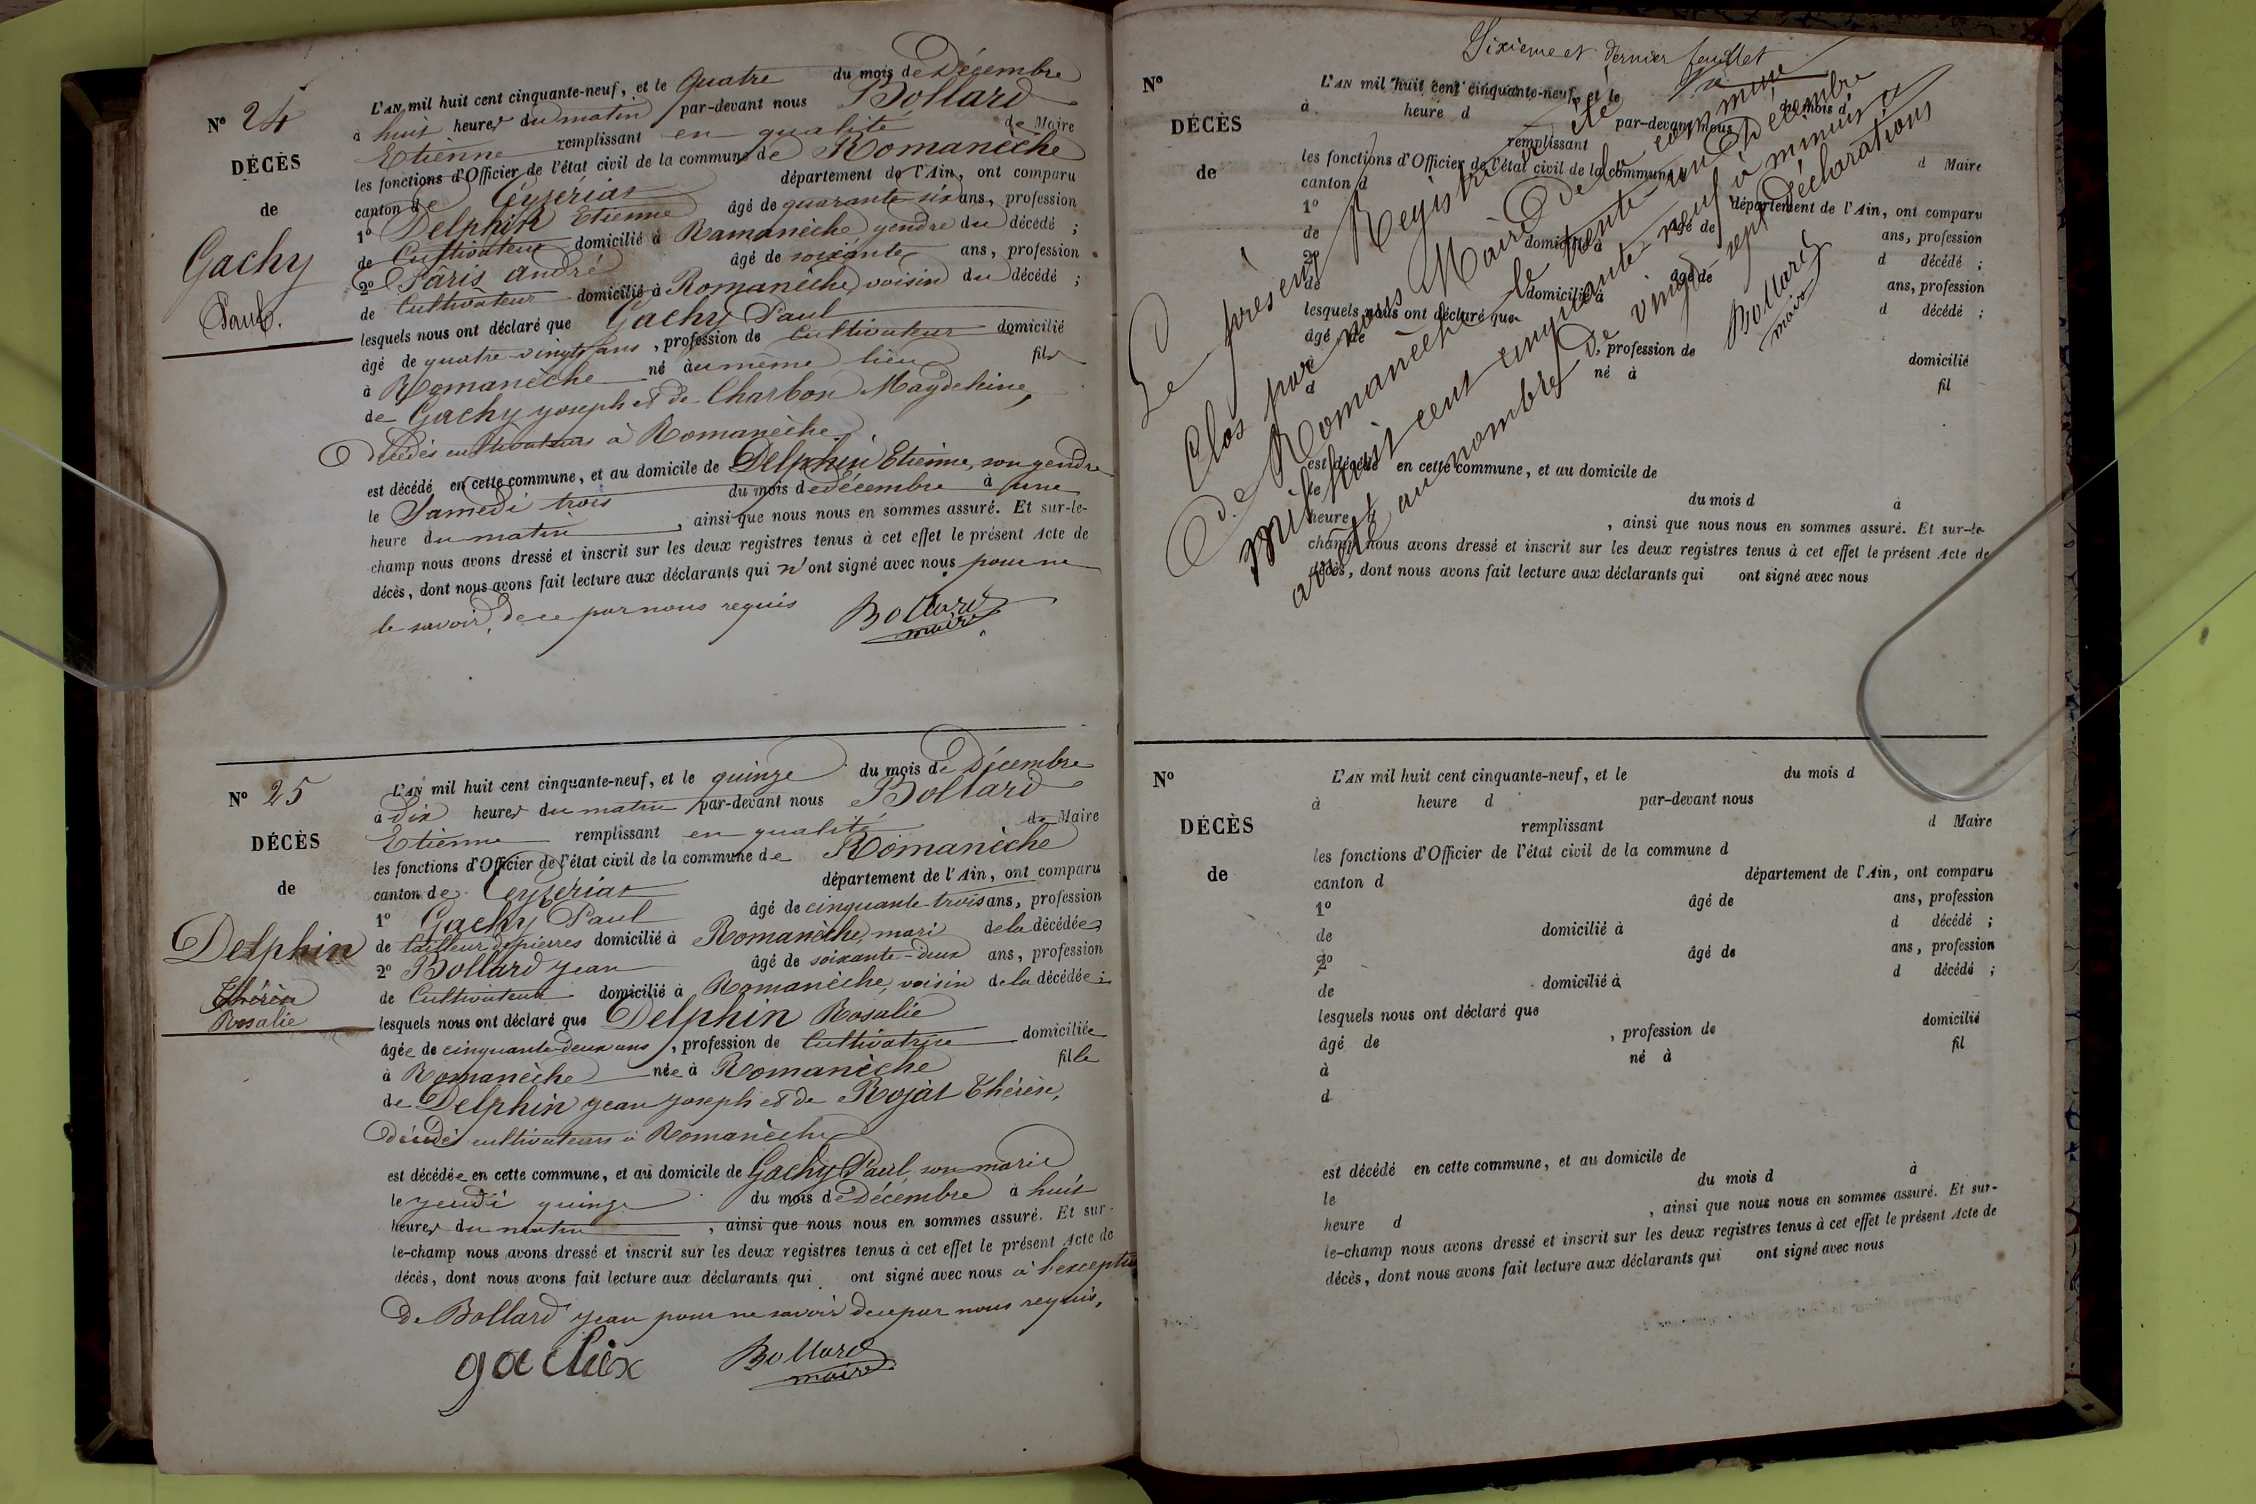 N° 24
DÉCÈS
de
Gachy
Paul.
L'AN mil huit cent cinquante-neuf, et le Quatre du mois de Décembre
à huit heures du matin par-devant nous Bollard
Etienne remplissant en qualité de Maire
les fonctions d'Officier de l'état civil de la commune de Romanèche
canton de Ceyzériat département de l'Ain, ont comparu
1° Delphin Etienne âgé de quarante six ans, profession
de Cultivateur domicilié à Romanèche gendre du décédé ;
2° Pâris andré âgé de soixante ans, profession
de Cultivateur domicilié à Romanèche, voisin du décédé ;
lesquels nous ont déclaré que Gachy Paul
âgé de quatre-vingts ans, profession de Cultivateur domicilié
à Romanèche né au même lieu fils
de Gachy joseph et de Charbon Magdeleine,
Décédés cultivateurs à Romanèche.
est décédé en cette commune, et au domicile de Delphin Etienne, son gendre
le Samedi trois du mois de décembre à une
heure du matin, ainsi que nous nous en sommes assuré. Et sur-le-
champ nous avons dressé et inscrit sur les deux registres tenus à cet effet le présent Acte de
décès, dont nous avons fait lecture aux déclarants qui n'ont signé avec nous pour ne
le savoir de ce par nous requis
Bollard
maire
N° 25
DÉCÈS
de
Delphin
Thérèse
Rosalie
L'AN mil huit cent cinquante-neuf, et le quinze du mois de Décembre
à Dix heures du matin par-devant nous Bollard
Etienne remplissant en qualité de Maire
les fonctions d'Officier de l'état civil de la commune de Romanèche
canton de Ceyzériat département de l'Ain, ont comparu
1° Gachy Paul âgé de cinquante-trois ans, profession
de tailleur de pierres domicilié à Romanèche, mari de la décédée ;
2° Bollard jean âgé de soixante-deux ans, profession
de Cultivateur domicilié à Romanèche, voisin de la décédée ;
lesquels nous ont déclaré que Delphin Rosalie
âgée de cinquante-deux ans, profession de Cultivatrice domiciliée
à Romanèche née à Romanèche fille
de Delphin jean joseph et de Rojat Thérèse,
décédés cultivateurs à Romanèche
est décédée en cette commune, et au domicile de Gachy Paul, son marie
le jeudi quinze du mois de Décembre à huit
heures du matin, ainsi que nous nous en sommes assuré. Et sur-
le-champ nous avons dressé et inscrit sur les deux registres tenus à cet effet le présent Acte de
décès, dont nous avons fait lecture aux déclarants qui ont signé avec nous à l'exception
de Bollard jean pour ne savoir de ce par nous requis,
Bollard
maire
Sixième et dernier feuillet
N°
DÉCÈS
de
L'AN mil huit cent cinquante-neuf, et le du mois d
à heure d par-devant nous
remplissant d Maire
les fonctions d'Officier de l'état civil de la commune d
canton d département de l'Ain, ont comparu
1° âgé de ans, profession
de domicilié à d décédé ;
2° âgé de ans, profession
de domicilié à d décédé ;
lesquels nous ont déclaré que
âgé de, profession de domicilié
à né à fil
d
est décédé en cette commune, et au domicile de
le du mois d à
heure d, ainsi que nous nous en sommes assuré. Et sur-le-
champ nous avons dressé et inscrit sur les deux registres tenus à cet effet le présent Acte de
décès, dont nous avons fait lecture aux déclarants qui ont signé avec nous
Le présent Registre a été
Clos par nous Maire de la commune
de Romanèche le trente un Décembre
mil huit cent cinquante-neuf à minuit
arrêté au nombre de vingt-sept Déclarations
Bollard
maire
N°
DÉCÈS
de
L'AN mil huit cent cinquante-neuf, et le du mois d
à heure d par-devant nous
remplissant d Maire
les fonctions d'Officier de l'état civil de la commune d
canton d département de l'Ain, ont comparu
1° âgé de ans, profession
de domicilié à d décédé ;
2° âgé de ans, profession
de domicilié à d décédé ;
lesquels nous ont déclaré que
âgé de, profession de domicilié
à né à fil
d
est décédé en cette commune, et au domicile de
le du mois d à
heure d, ainsi que nous nous en sommes assuré. Et sur-
le-champ nous avons dressé et inscrit sur les deux registres tenus à cet effet le présent Acte de
décès, dont nous avons fait lecture aux déclarants qui ont signé avec nous